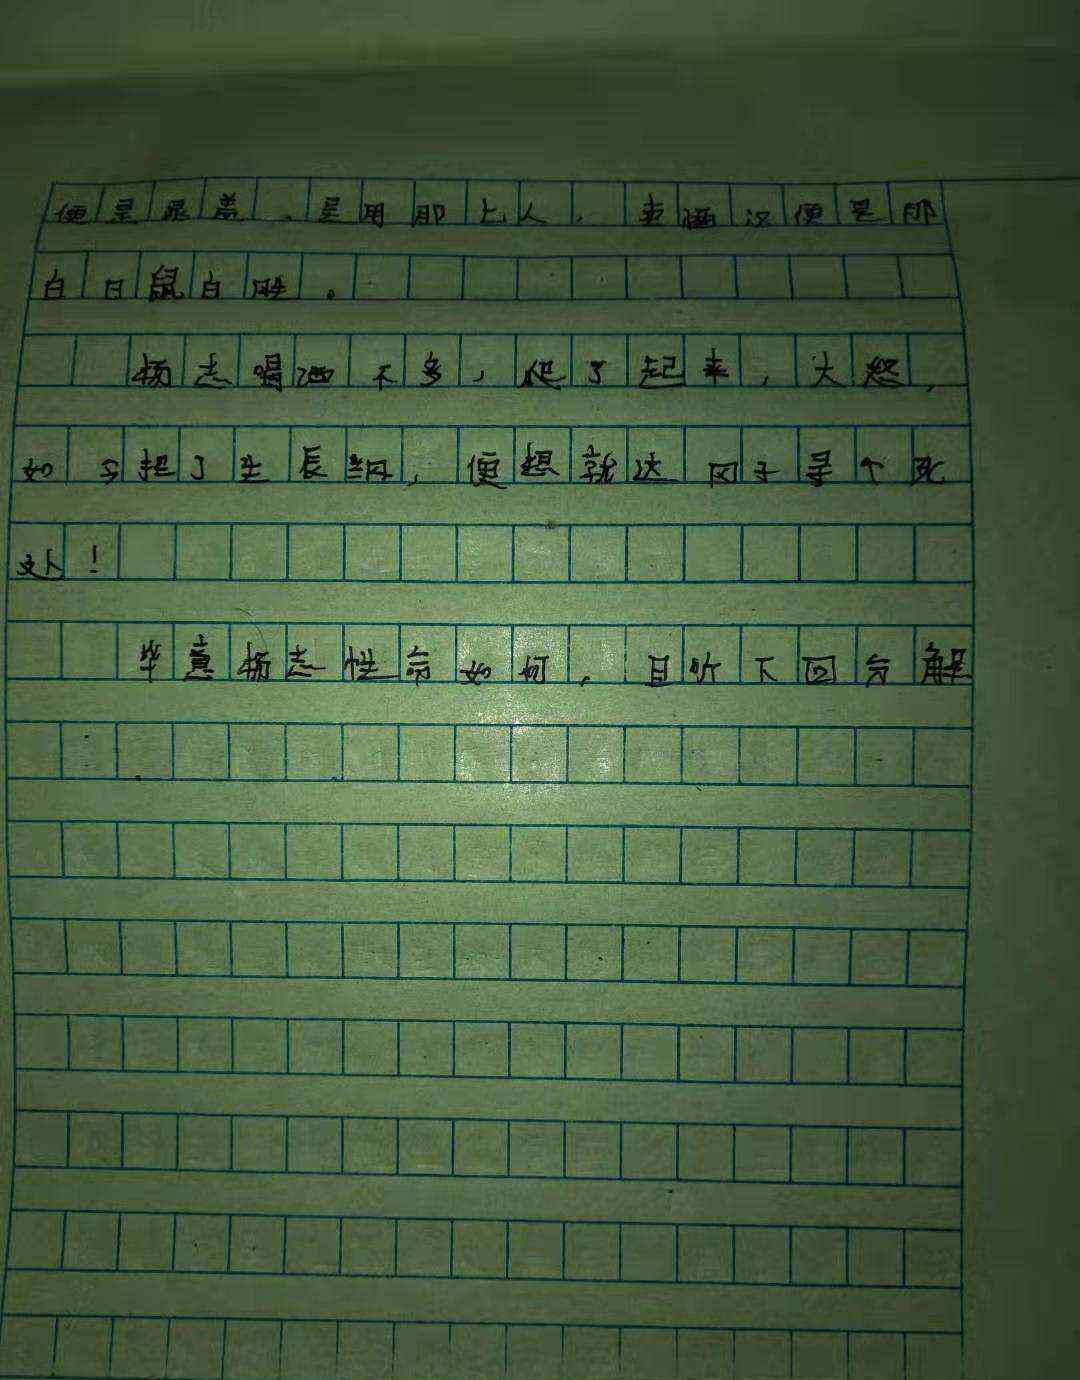 便是晁盖、是用那七人，卖酒汉便是那
白日鼠白胜。
杨志喝酒不多，便了起来，大怒，
如今把了生辰纲，便想就达冈子寻个死
处！
毕竟杨志性命如何，且听下回分解